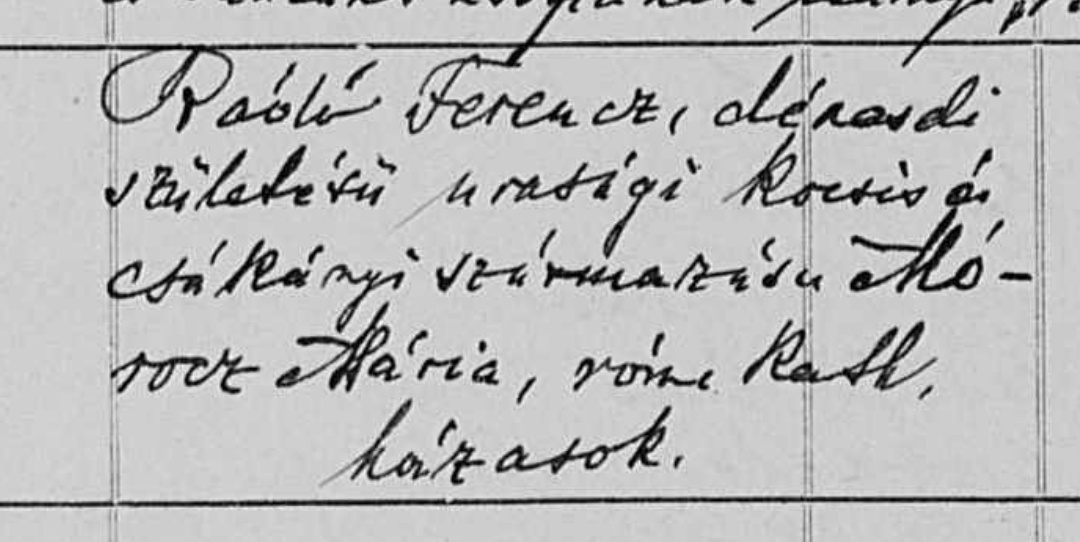 Raóló Ferencz, dénasdi
születésü urasági kocsis és
csákányi származásu Mó-
rocz Mária, róm. kath.
házasok.